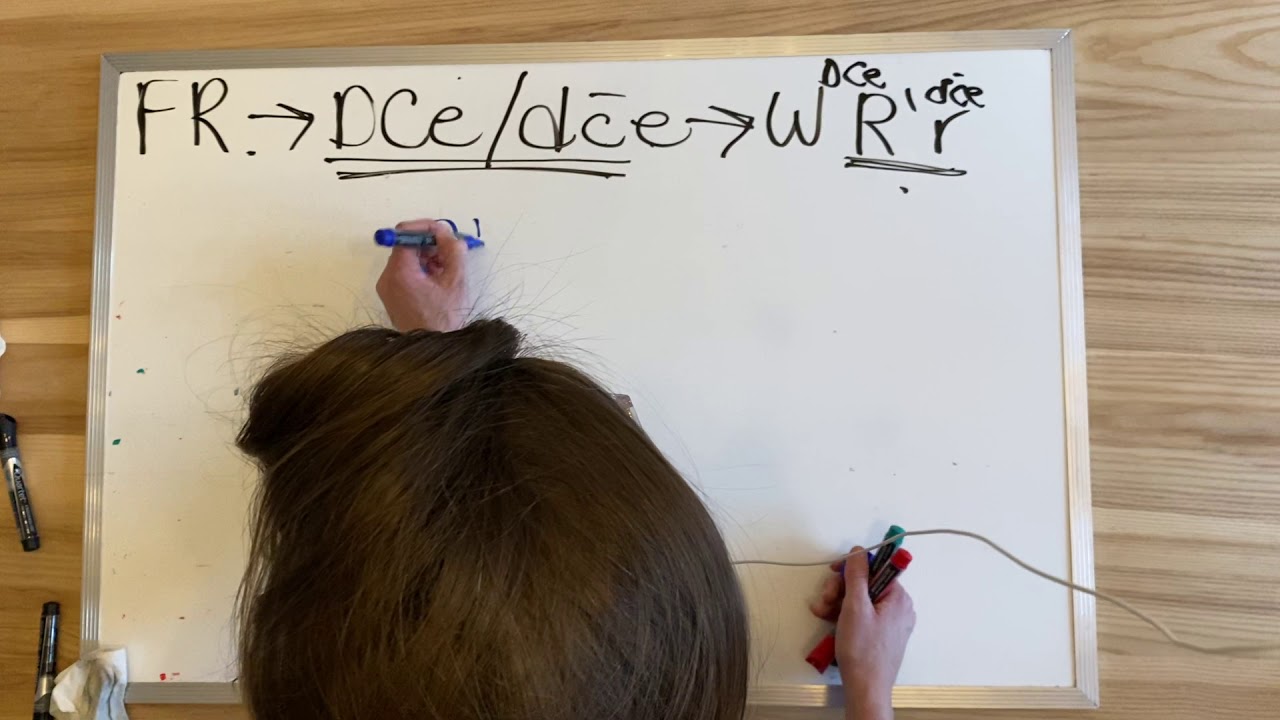 FR. → DCe/dc̄e → W R^DCe, r^dc̄e